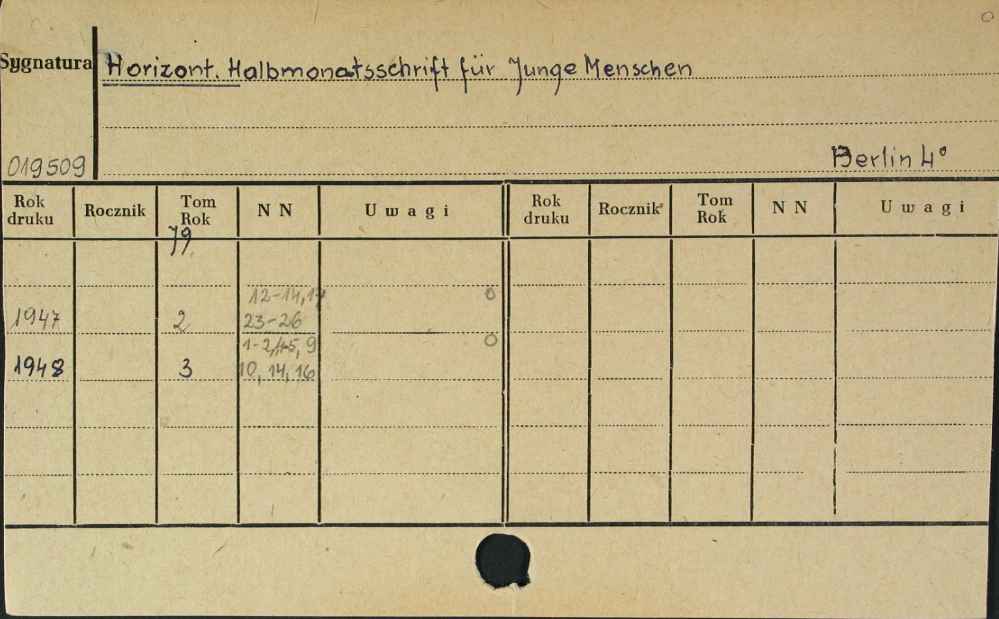 Sygnatura Horizont. Halbmonatsschrift für Junge Menschen
019509 Berlin 4°
Rok druku Rocznik Tom Rok N N Uwagi Rok druku Rocznik Tom Rok N N Uwagi
Jg.
12-14, 17
1947 2 23-26
1-2, 4-5, 9
1948 3 10, 14, 16